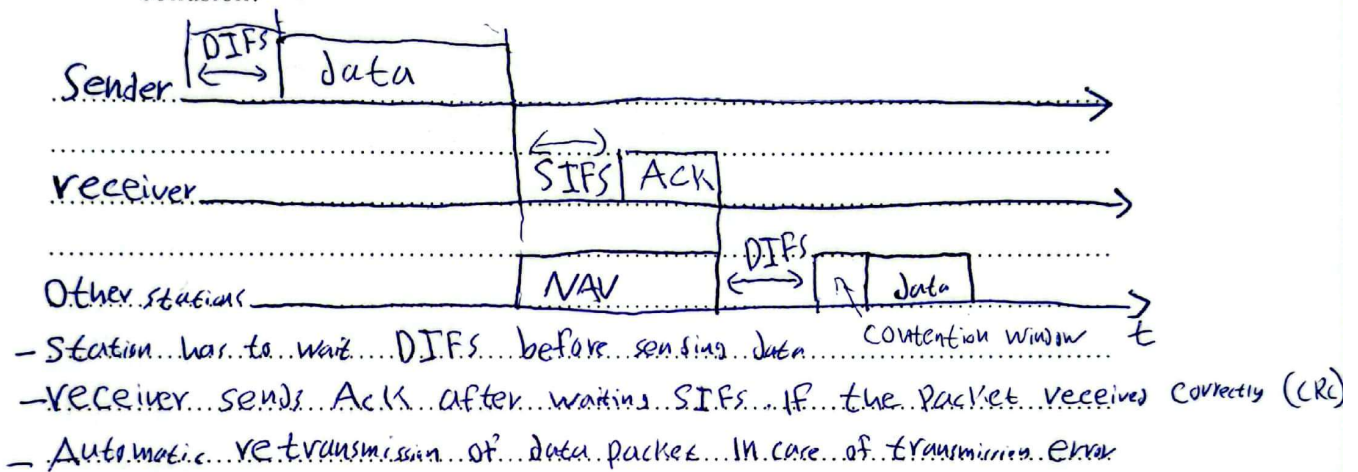 DIFS
data
Sender
SIFS
Ack
receiver
DIFS
NAV
data
Other stations
contention window
t
- Station has to wait DIFS before sensing data
- receiver sends Ack after waiting SIFS If the Packet received Correctly (CRC)
- Automatic retransmission of data packet In case of transmission error